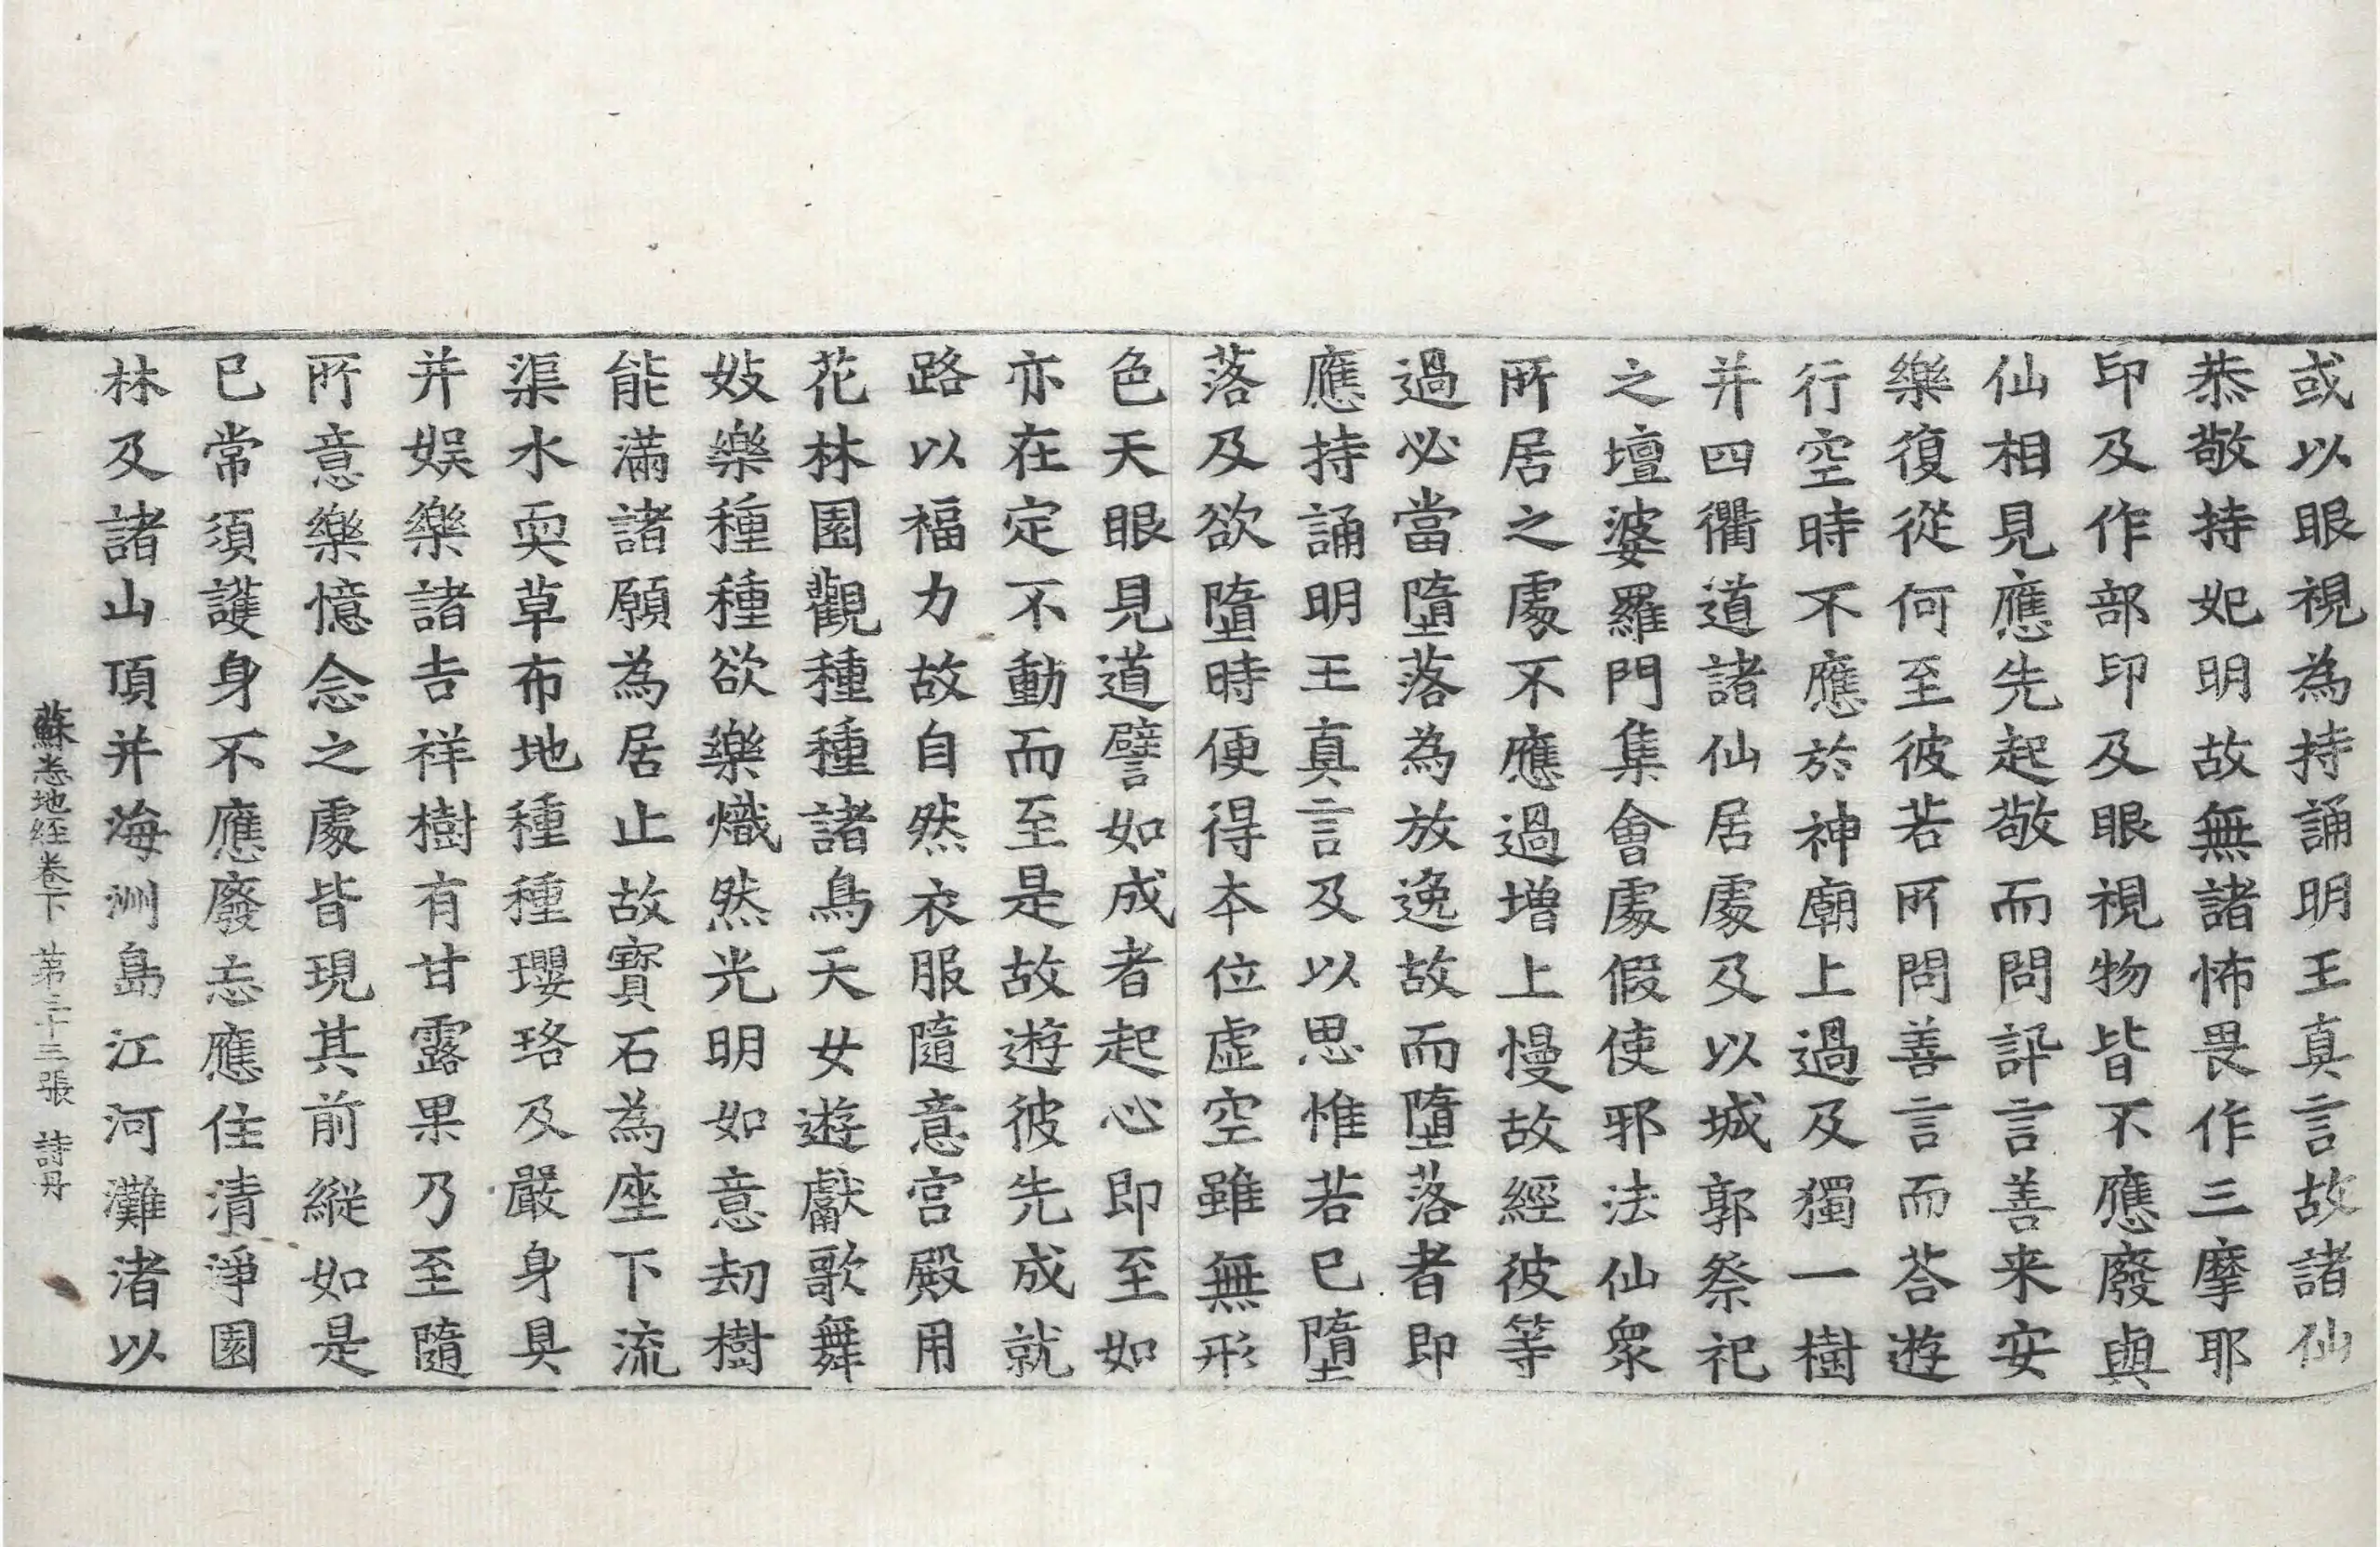 或以眼視為持誦明王真言故諸仙
恭敬持妃明故無諸怖畏作三摩耶
印及作部印及眼視物皆不應廢與
仙相見應先起敬而問訊言善来安
樂復從何至彼若所問善言而荅遊
行空時不應於神廟上過及獨一樹
并四衢道諸仙居處及以城郭祭祀
之壇婆羅門集會處假使邪法仙衆
所居之處不應過增上慢故經彼等
過必當墮落為放逸故而墮落者即
應持誦明王真言及以思惟若已墮
落及欲墮時便得本位虛空雖無形
色天眼見道譬如成者起心即至如
亦在定不動而至是故遊彼先成就
路以福力故自然衣服隨意宮殿用
花林園觀種種諸鳥天女遊獻歌舞
妓樂種種欲樂熾然光明如意劫樹
能滿諸願為居止故寶石為座下流
渠水耎草布地種種瓔珞及嚴身具
并娛樂諸吉祥樹有甘露果乃至隨
所意樂憶念之處皆現其前縱如是
已常須護身不應廢忘應住清淨園
林及諸山頂并海洲島江河灘渚以
蘇悉地経卷下 苐三十三張 詩丹